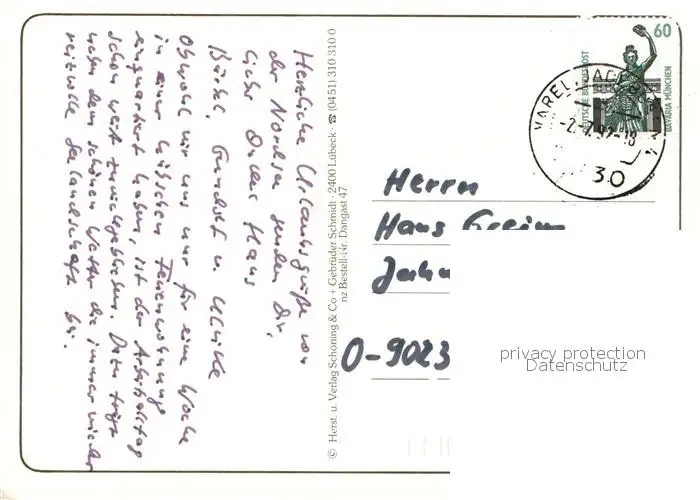 Herzliche Urlaubsgrüße von
der Nordsee senden Dir,
lieber Onkel Hans
Bärbel, Gundolf u. Ulrike
Obwohl wir uns nur für eine Woche
in einer hübschen Ferienwohnung
einquartiert haben, ist der Arbeitsalltag
schon weit zurückgeblieben. Dazu trägt
neben dem schönen Wetter die immer wieder
reizvolle Landschaft bei.
© Herst. u. Verlag Schöning & Co + Gebrüder Schmidt · 2400 Lübeck · ☎ (0451) 310 310 0
nz Bestell-Nr. Dangast 47
60
DEUTSCHE BUNDESPOST
BAVARIA MÜNCHEN
VAREL, JADEBUSEN
-2.-7.92-18
30
Herrn
Hans
O-9023
privacy protection
Datenschutz